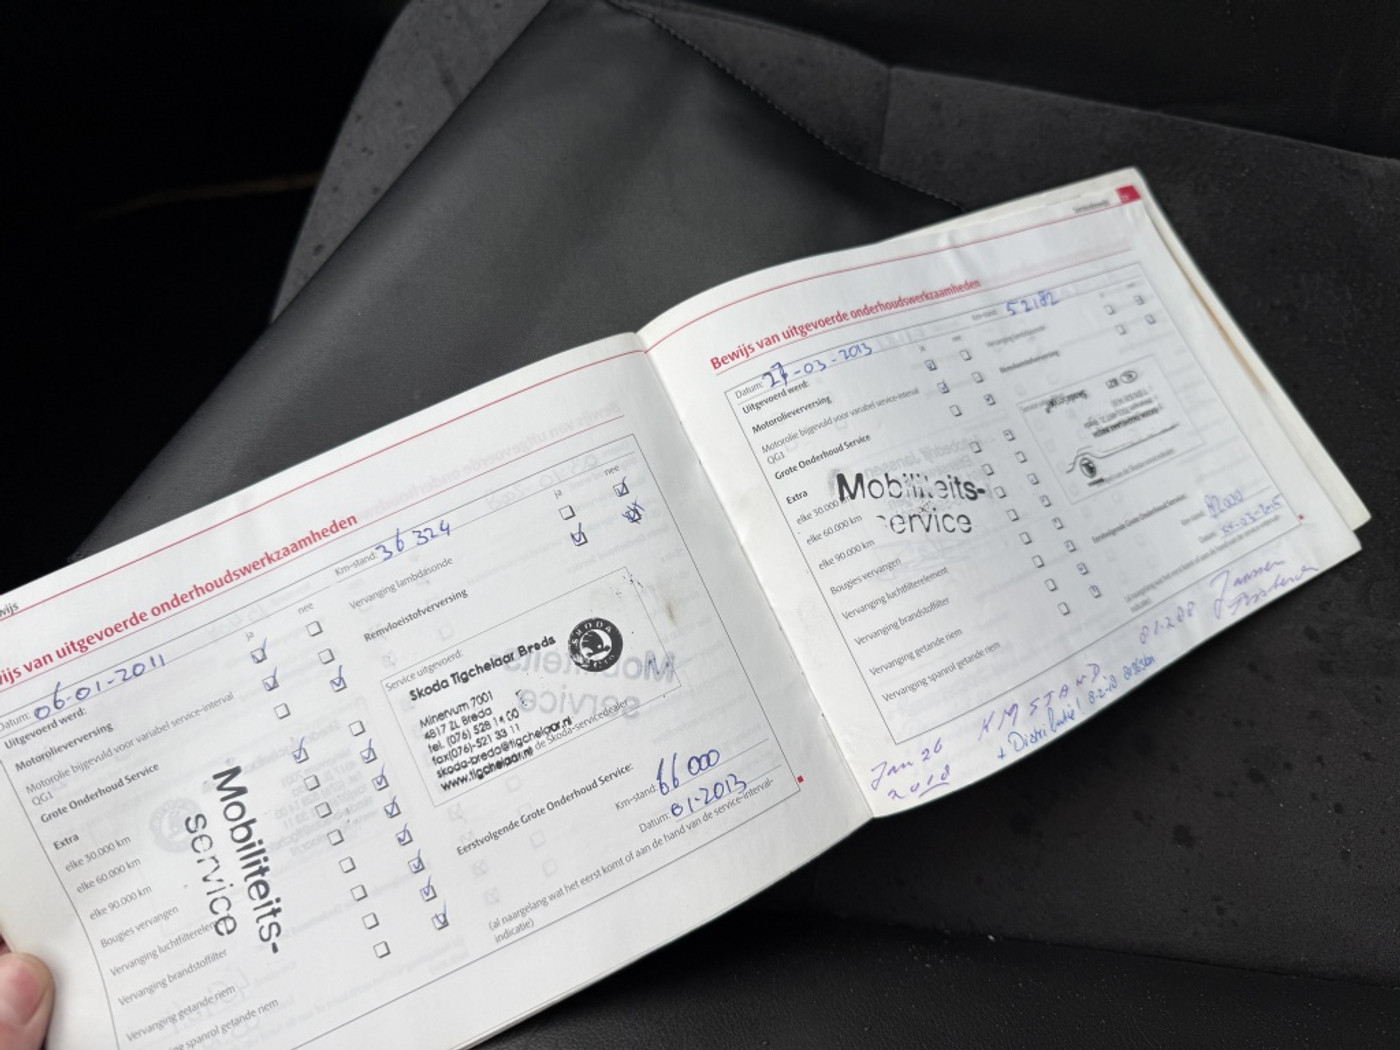 wijs
ijs van uitgevoerde onderhoudswerkzaamheden
Datum: 06-01-2011
Km-stand: 36 324
Uitgevoerd werd:
ja nee
Motorolieverversing
Motorolie bijgevuld voor variabel service-interval
QG1
Grote Onderhoud Service
Extra
elke 30.000 km
elke 60.000 km
elke 90.000 km
Bougies vervangen
Vervanging luchtfilterelem
Vervanging brandstoffilter
Vervanging getande riem
ging spanrol getande riem
Mobiliteits-
service
ja nee
Vervanging lambdasonde
Remvloeistofverversing
Service uitgevoerd:
Skoda Tigchelaar Breda
Minervum 7001
4817 ZL Breda
tel. (076) 528 14 00
fax(076)-521 33 11
skoda-breda@tigchelaar.nl
www.tigchelaar.nl
de Skoda-servicedealer
SKODA
Eerstvolgende Grote Onderhoud Service:
Km-stand: 66 000
Datum: 01-2013
(al naargelang wat het eerst komt of aan de hand van de service-interval-
indicatie)
Bewijs van uitgevoerde onderhoudswerkzaamheden
Datum: 27-03-2013
Km-stand: 52182
Uitgevoerd werd:
ja nee
Motorolieverversing
Motorolie bijgevuld voor variabel service-interval
QG1
Grote Onderhoud Service
Extra
elke 30.000 km
elke 60.000 km
elke 90.000 km
Bougies vervangen
Vervanging luchtfilterelement
Vervanging brandstoffilter
Vervanging getande riem
Vervanging spanrol getande riem
Mobiliteits-
ervice
Remvloeistofverversing
Eerstvolgende Grote Onderhoud Service:
Km-stand:
Datum:
(al naargelang wat het eerst komt of aan de hand van de service-interval-
indicatie)
Jan 26 KM STAND. 81.288 Janssen
2018 + Distributie